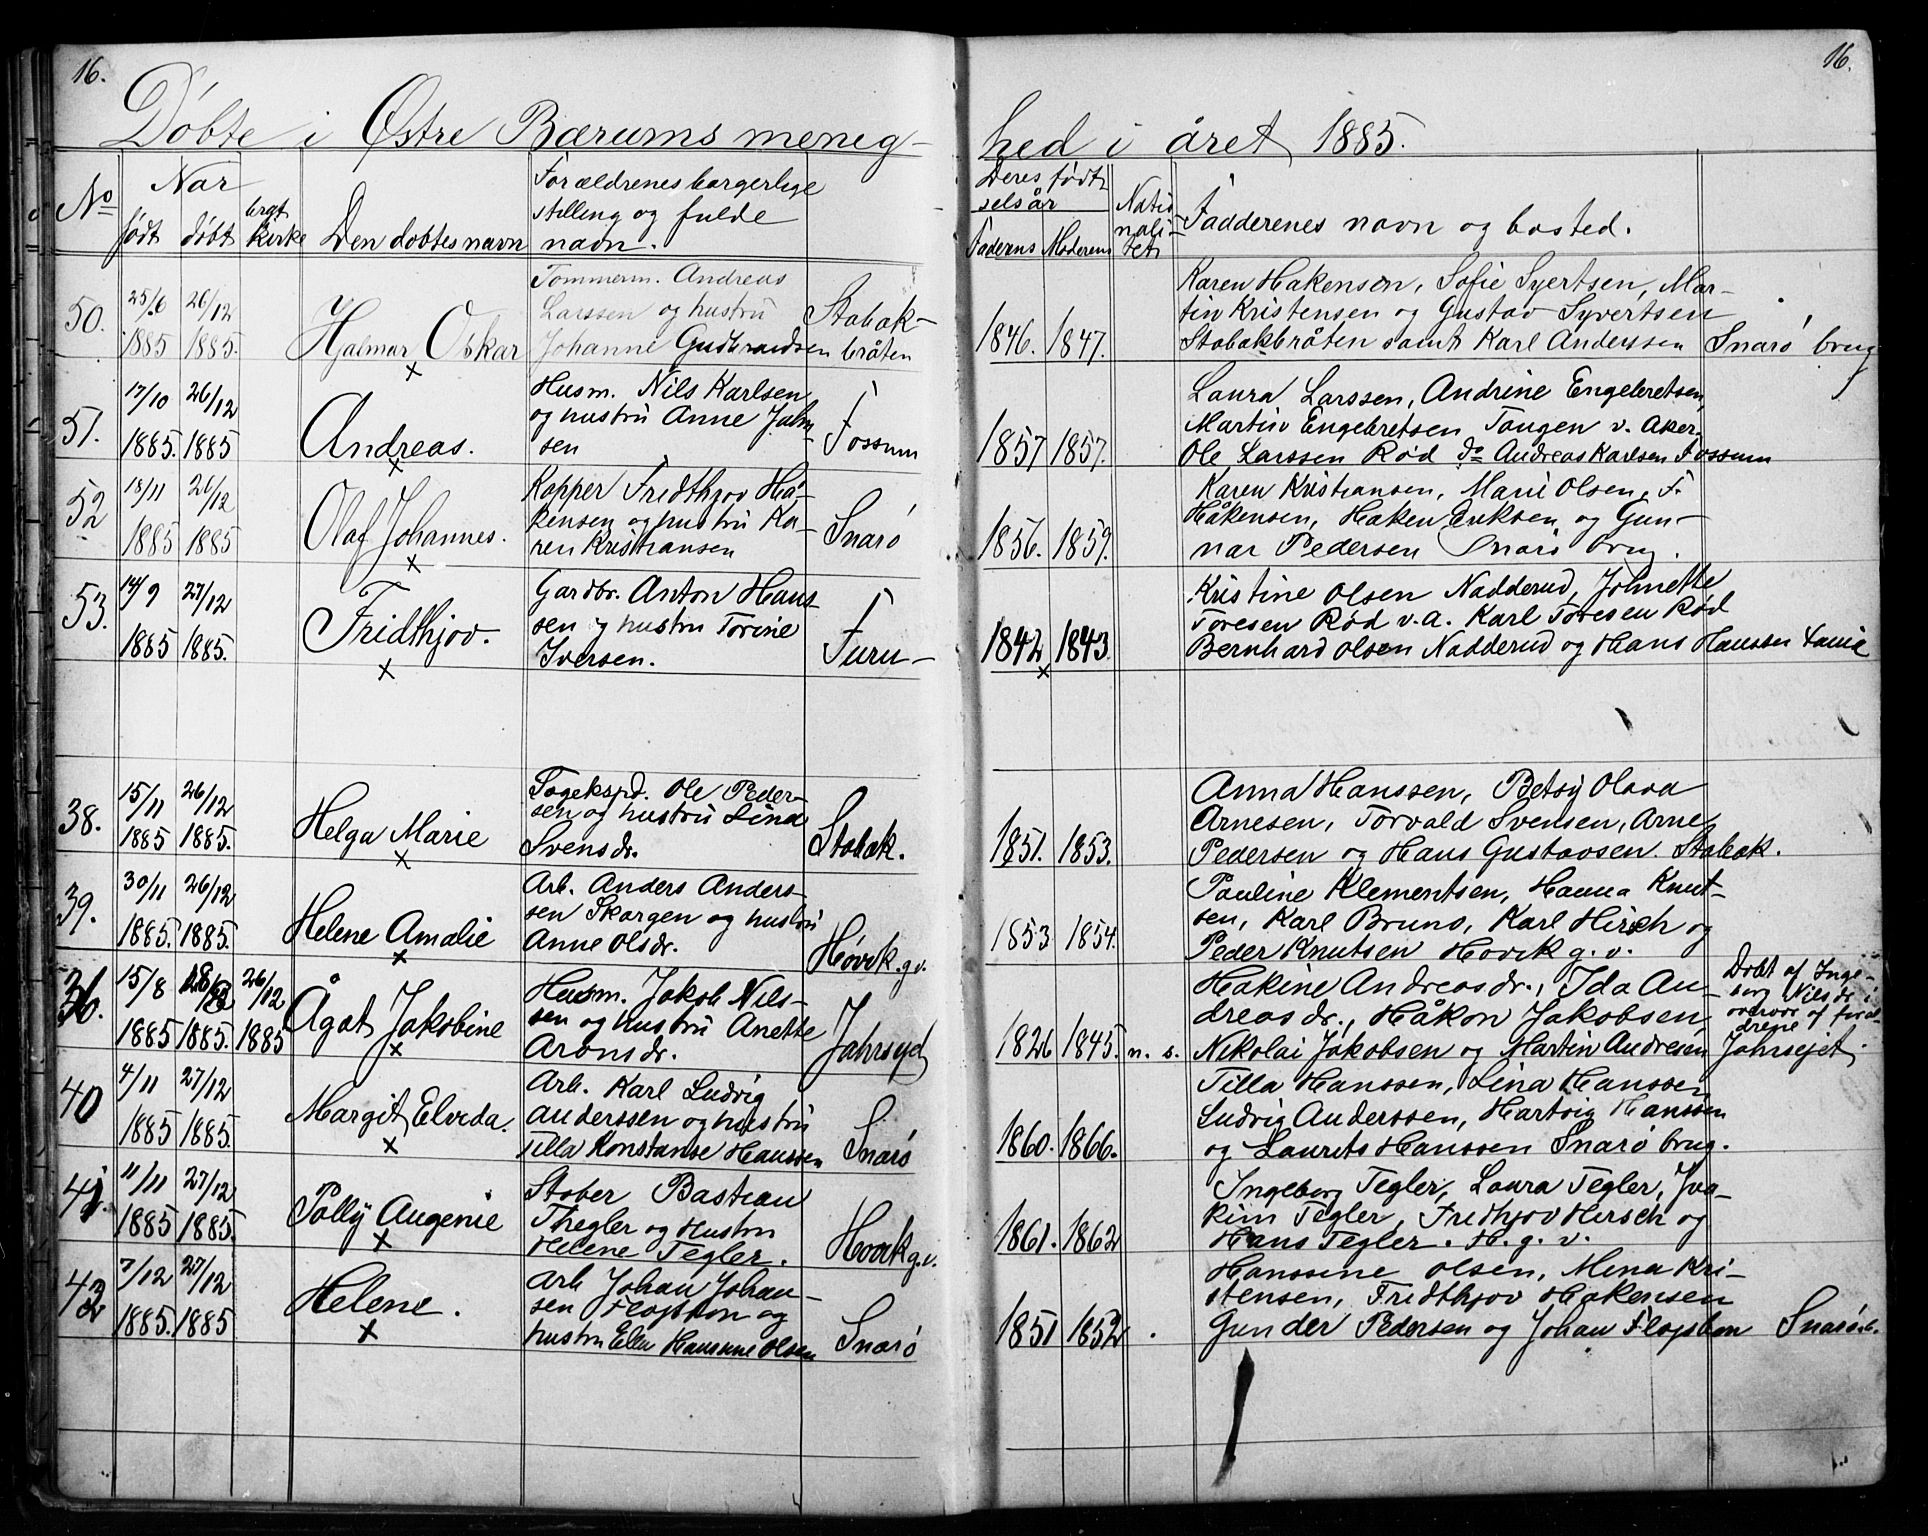 16.
16.
Døbte i Østre Bærums menig-
hed i året 1885.
No
Nar
født
døbt
brgt kirke
Den døbtes navn
Forældrenes borgerlige
stilling og fulde
navn.
Deres føds-
selsår
Faderns Moderens
Natio
nali-
tet
Fadderenes navn og bosted.
50.
25/6 26/12
1885 1885.
Hjalmar Oskar
Tømmerm. Andreas
Larssen og hustru
Johanne Gudbrandsen
Stabæk-
bråten
1846. 1847.
Karen Hakensen, Sofie Syertsen, Mar-
tin Kristensen og Gustav Syvertsen
Stabækbråten samt Karl Anderssen Snarø brug
51.
17/10 26/12
1885. 1885
Andreas.
Husm. Nils Karlsen
og hustru Anne Johan-
sen
Fossum
1857 1857.
Laura Larssen, Andrine Engebretsen,
Martin Engebretsen Tangen v. Aker.
Ole Larssen Rød do Andreas Karlsen Fossum
52
18/11 26/12
1885 1885
Olaf Johannes.
Kopper Fridthjov Hå-
kensen og hustru Ka-
ren Kristiansen
Snarø
1856. 1859.
Karen Kristiansen, Marie Olsen, F.
Håkensen, Haken Eriksen og Gun-
nar Pedersen Snarø brug.
53.
14/9 27/12
1885 1885.
Fridthjov.
Gardbr. Anton Hans-
sen og hustru Torine
Iversen.
Furu
1842 1843.
Kristine Olsen Nadderud, Johnette
Toresen Rød v.a. Karl Toresen Rød
Bernhard Olsen Nadderud og Hans Hanssen
38.
15/11 26/12
1885 1885.
Helga Marie
Togekspd. Ole Peder-
sen og hustru Lina
Svensdr.
Stabæk.
1851. 1853.
Anna Hanssen, Betsy Olava
Arnesen, Torvald Svensen, Arne
Pedersen og Hans Gustavsen. Stabæk.
39.
30/11 26/12
1885. 1885.
Helene Amalie
Arb. Anders Anders-
sen Skorgen og hustru
Anne Olsdr.
Høvik. g.v.
1853 1854.
Pauline Klementsen, Hanna Knut-
sen, Karl Bruno, Karl Hirsch og
Peder Knutsen Hovik g. v.
36.
15/8 26/12
1885 1885. 1885
Ågot Jakobine
Husm. Jakob Nils-
sen og hustru Anette
Aronsdr.
Jahrsejd
1826 1845. n. s.
Hakine Andreasdr., Ida An-
dreasdr., Håkon Jakobsen,
Nikolai Jakobsen og Martin Andresen
Døbt af Inge-
borg Nilsdr i
overvær af foræl-
drene
Jahrsejet.
40
4/11 27/12
1885 1885.
Margit Elveda.
Arb. Karl Ludvig
Anderssen og hustru
Tilla Konstanse Hanssen
Snarø
1860. 1866.
Tilla Hanssen, Lina Hanssen
Ludvig Anderssen, Hartvig Hanssen
og Laurits Hanssen Snarø brug.
41.
11/11 27/12
1885 1885.
Polly Augenie
Støber Bastian
Thegler og Hustru
Helene Tegler.
Hovik g.v.
1861. 1862
Ingeborg Tegler, Laura Tegler, Joa-
kim Tegler, Fredhjov Hirsch og
Hans Tegler. H. g. v.
42
7/12 27/12
1885. 1885
Helene.
Arb Johan Johan-
sen Flojsbon og
hustru Ellen Hansine Olsen
Snarø
1851 1852.
Hanssine Olsen, Mena Kri-
stensen, Fridthjov Hakensen
Gunder Pedersen og Johan Flojsbon Snarø b.